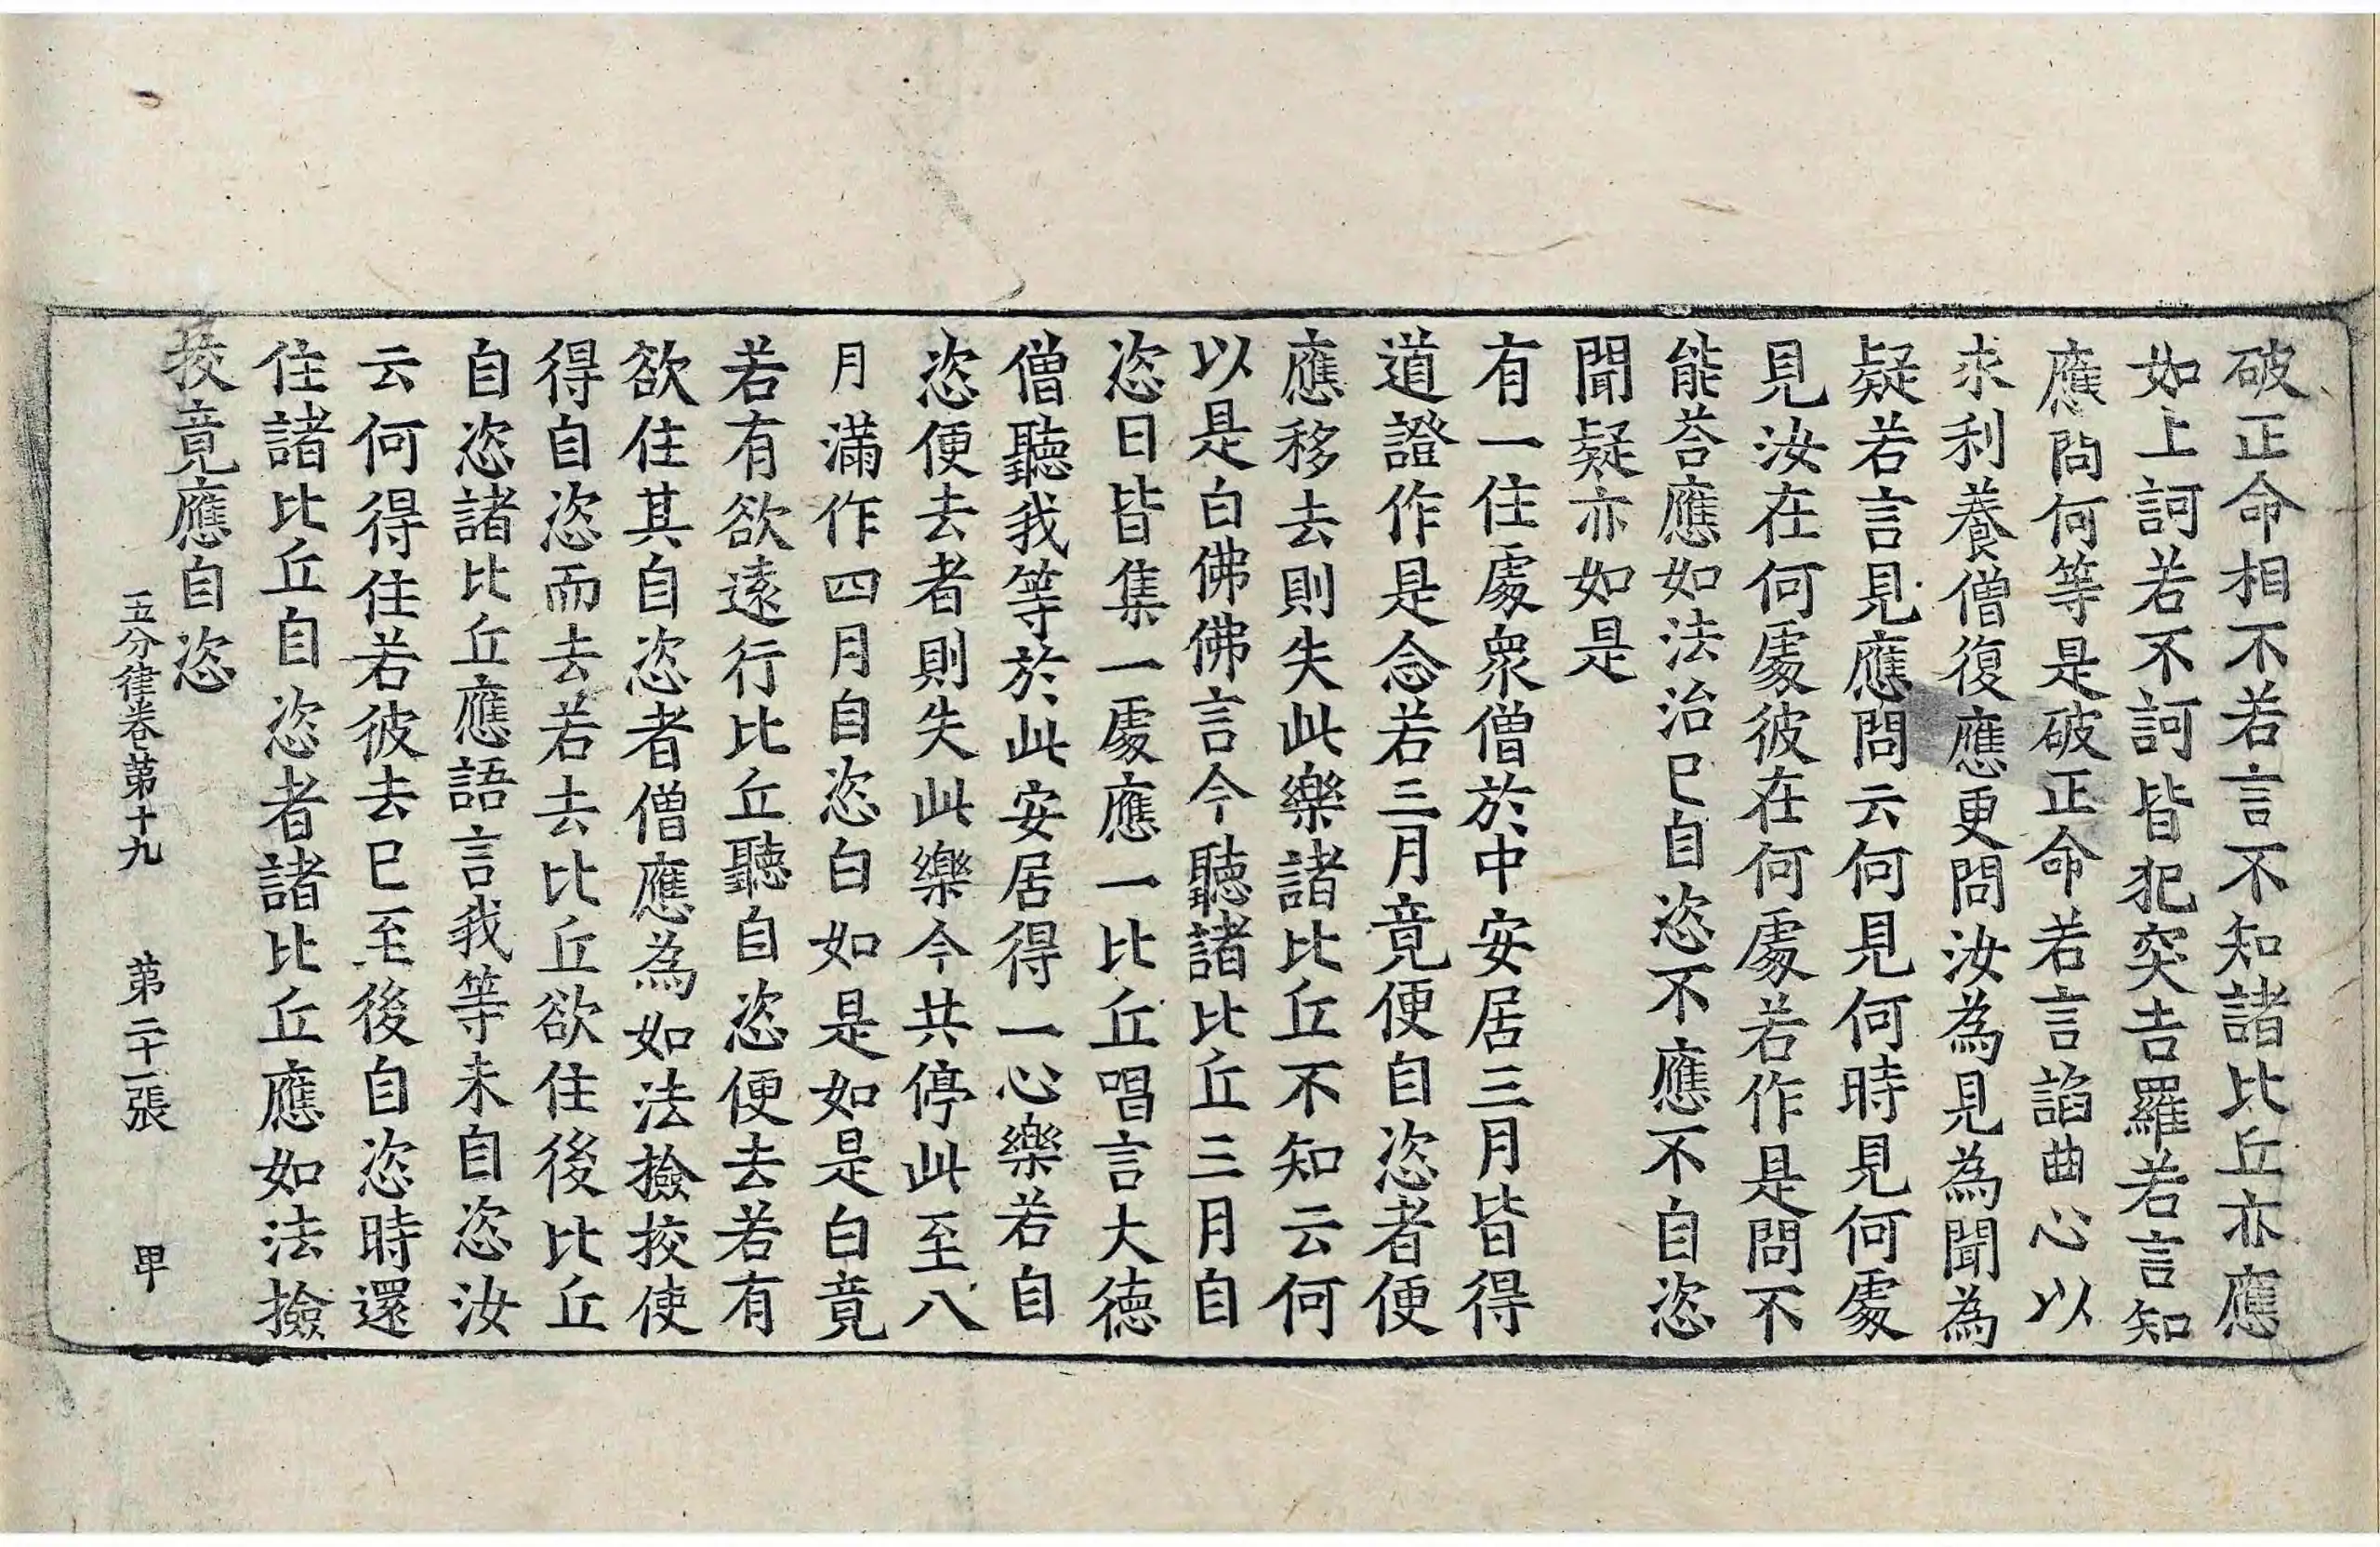 破正命相不若言不知諸比丘亦應
如上訶若不訶皆犯突吉羅若言知
應問何等是破正命若言諂曲心以
求利養僧復應更問汝為見為聞為
疑若言見應問云何見何時見何處
見汝在何處彼在何處若作是問不
能荅應如法治已自恣不應不自恣
聞疑亦如是
有一住處衆僧於中安居三月皆得
道證作是念若三月竟便自恣者便
應移去則失此樂諸比丘不知云何
以是白佛佛言今聽諸比丘三月自
恣日皆集一處應一比丘唱言大德
僧聽我等於此安居得一心樂若自
恣便去者則失此樂今共停此至八
月滿作四月自恣白如是如是白竟
若有欲遠行比丘聽自恣便去若有
欲住其自恣者僧應為如法撿挍使
得自恣而去若去比丘欲住後比丘
自恣諸比丘應語言我等未自恣汝
云何得住若彼去已至後自恣時還
住諸比丘自恣者諸比丘應如法撿
挍竟應自恣
五分律卷第十九 第二十一張 甲